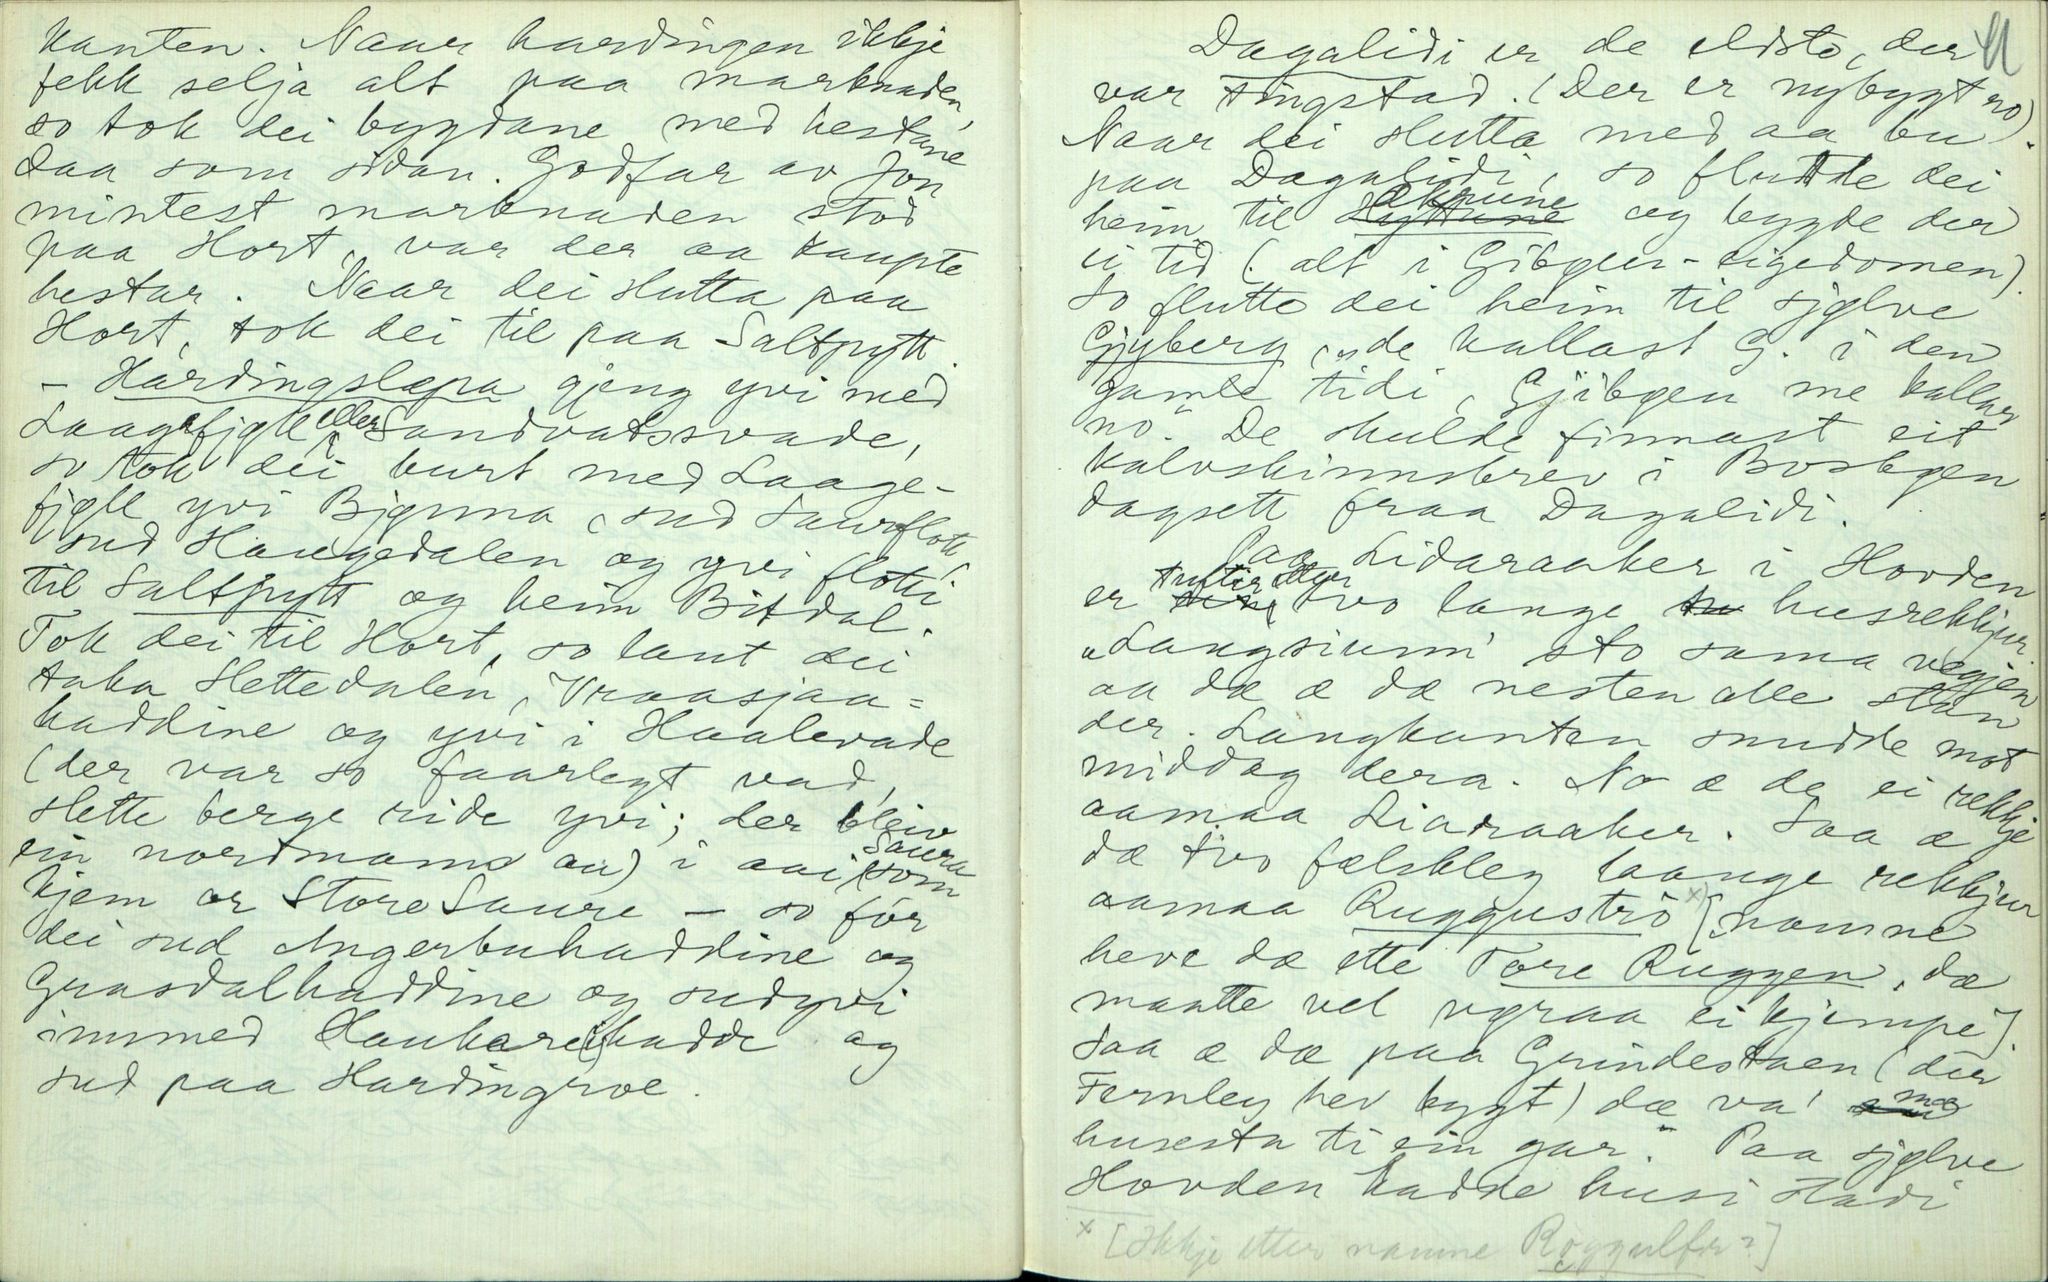 kanten. Naar hardingen ikkje
fekk selja alt paa marknaden,
so tok dei bygdane med hestane
daa som sidan. Godfar av Jon
mintest marknaden stod
paa Hort, var der aa kaupte
hestar. Naar dei slutta paa
Hort, tok dei til paa Saltpytt.
- Hardingslepa gjeng yvi med
Laagefjøll eller Sandvatssvade,
so tok dei burt med Laage-
fjøll yvi Bjønna, sud Saureflott,
sud Haugedalen og yvi flotti
til Saltpytt og heim Bitdal.
Tok dei til Hort, so laut dei
taka Slettedalen, Vraasjaa-
haddine og yvi i Haalevade
(der var so faarlegt vad,
slette berge ride yvi; der bleiv
ein nordmann au) i aai Saura som
kjem or Store Saure - so fór
dei sud Angerbuhaddine og
Grasdalhaddine og sudyvi
innmed Haukarei(s)hadde og
sud paa Hardingroe.
11
Dagalidi er de eldsto, der
var tingstad. (Der er nybygt no).
Naar dei slutta med aa bu
paa Dagalidi, so flutte dei
heim til Hyttune Økrune og bygde der
ei tid (: alt i Gibøen-eigedomen).
So flutte dei heim til sjølve
Gjyberg, "de kallast G. i den
gamle tidi, Gjibøen me kallar
no". De skulde finnast eit
kalvskinnsbrev i Bosbøen
dagsett fraa Dagalidi.
Paa Lidaraaker i Hovden
er tuftir etter tvo lange husrekkjur.
"Langsiunn' sto sama vegjen
aa dæ æ dæ nesten alle stan
der. Langkanten snudde mot
middag dera. No æ de ei rekkje
aamaa Liaraaker. Saa æ
dæ tvo fælskleg laange rekkjur
aamaa Ruggustrò x) [namne
heve dæ ette Tore Ruggen, dæ
maatte vel vøraa ei kjempe].
Saa æ dæ paa Grindestaen (der
Fernley hev bygt) dæ va' mæ
husesta ti ein gar." Paa sjølve
Hovden hadde husi stadi
x [Ikkje etter namne Roggulfr?]